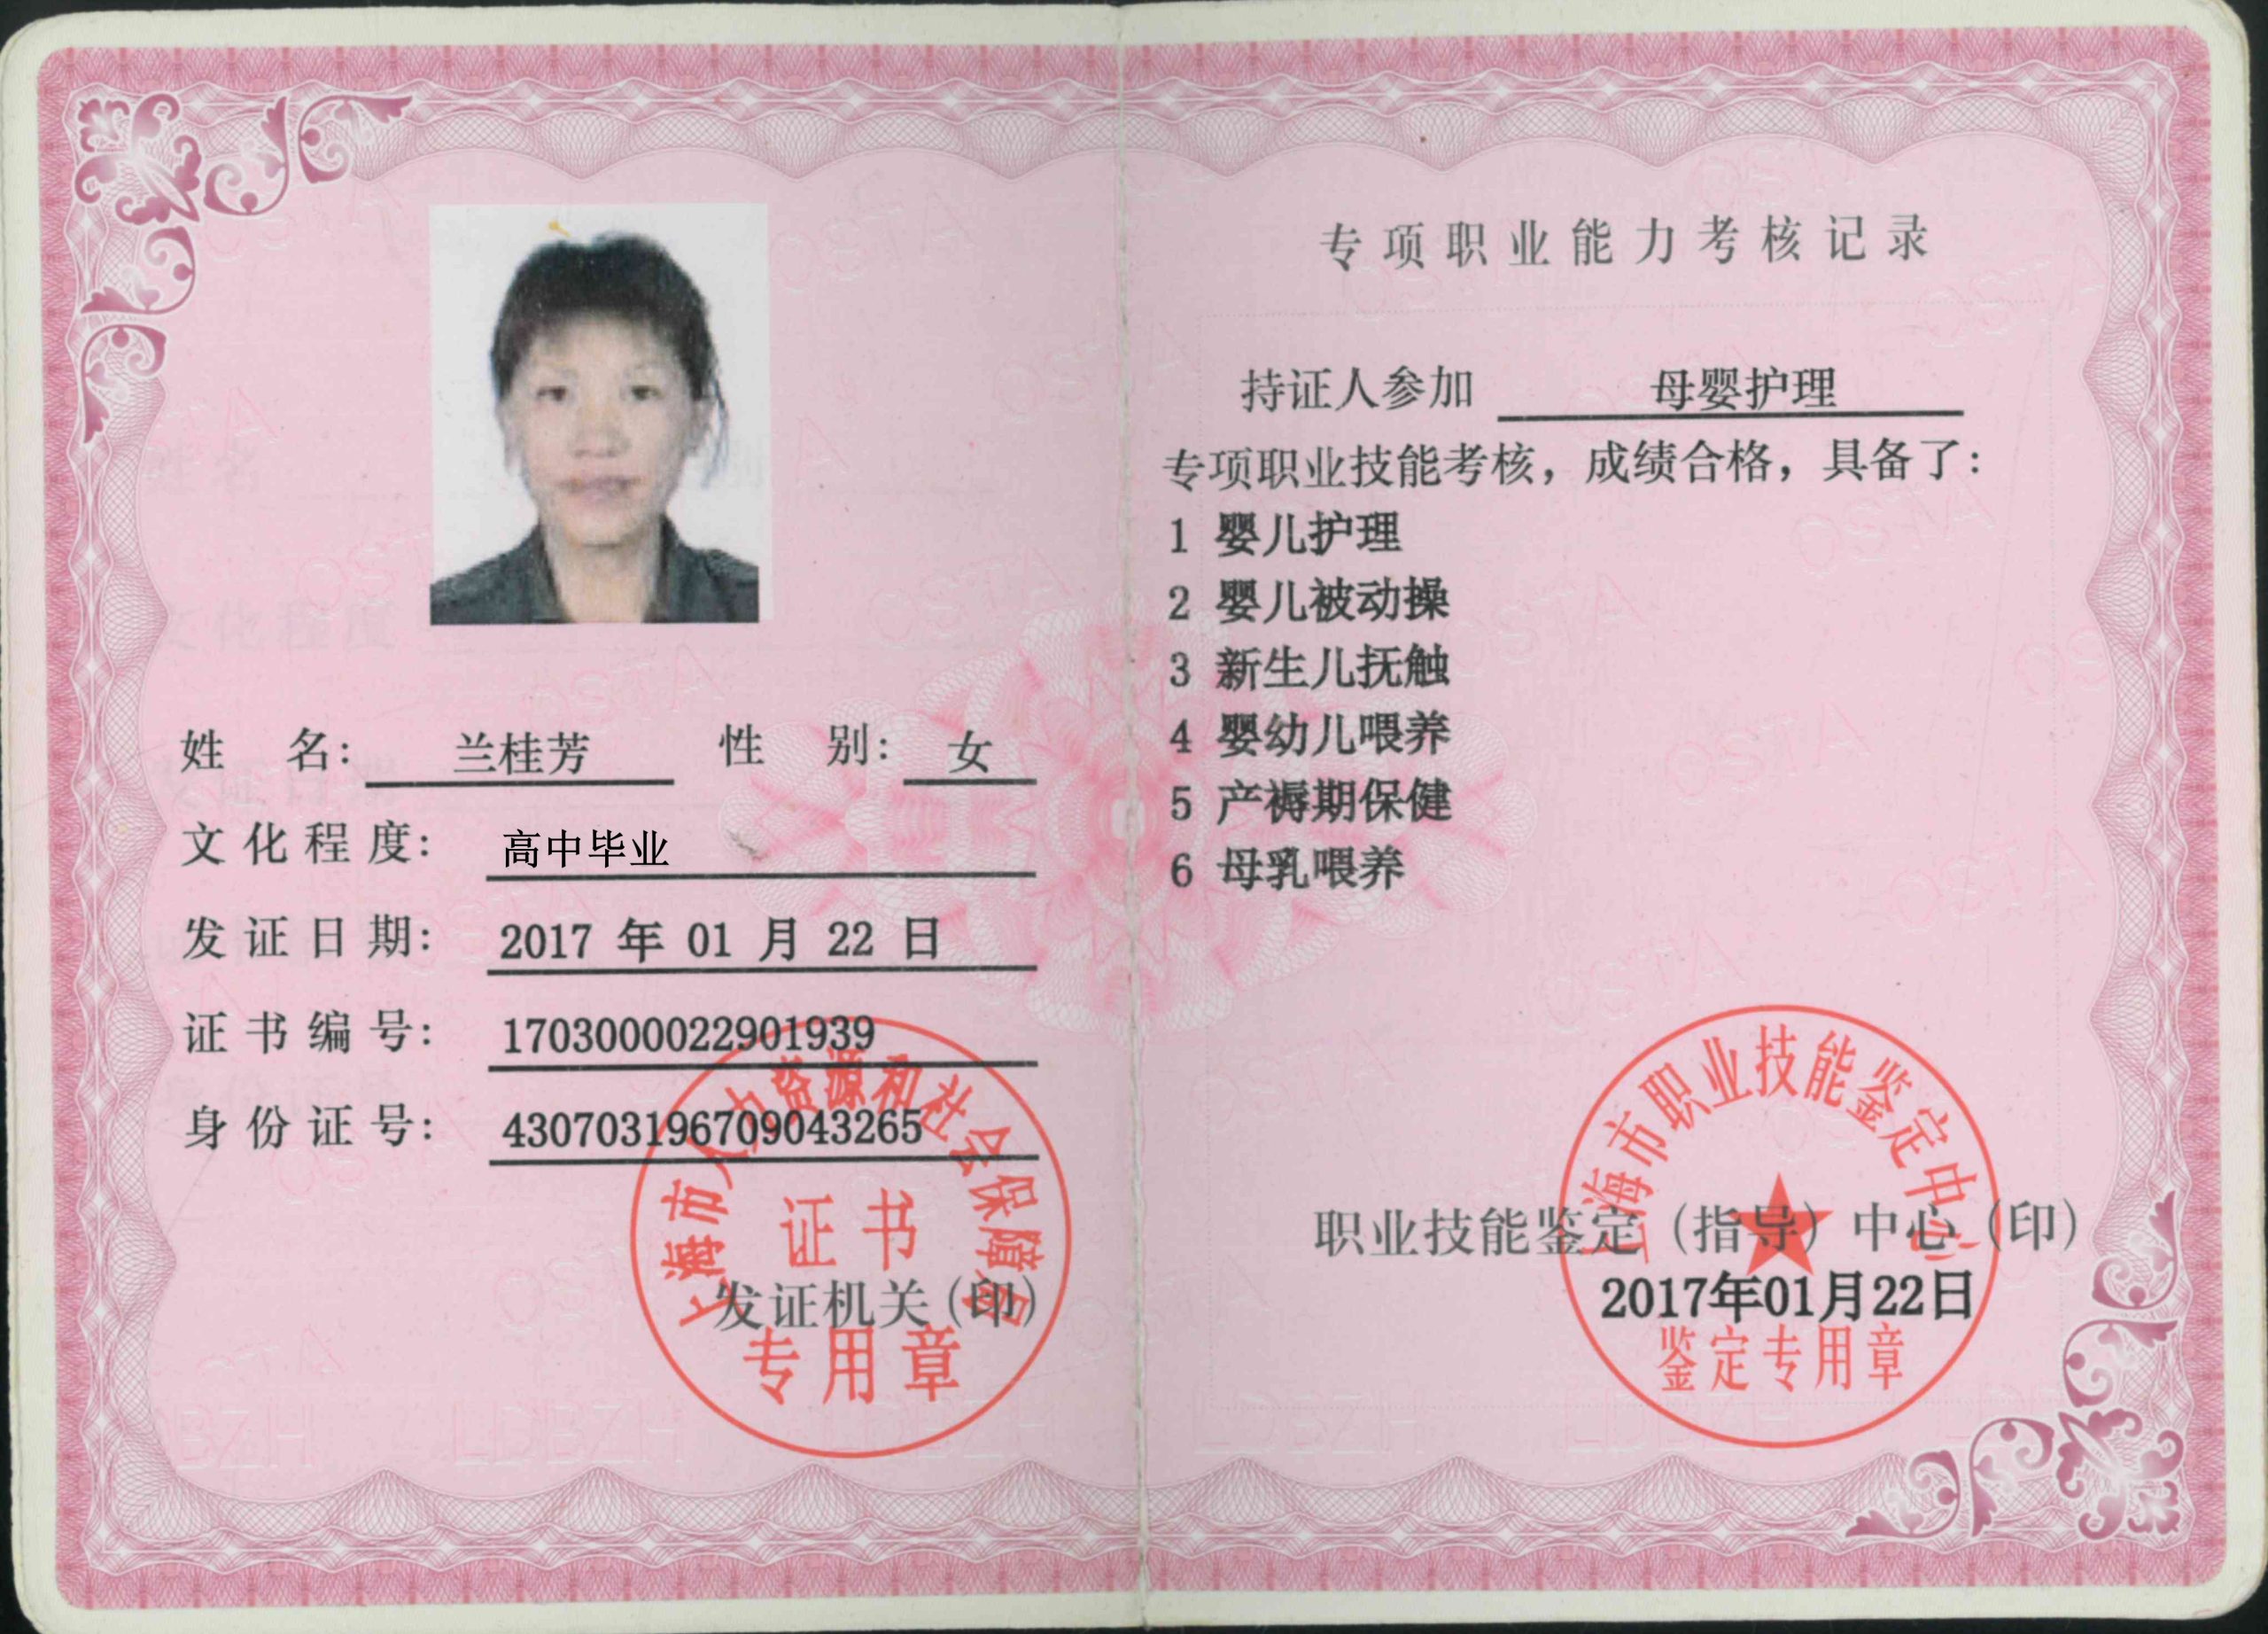 姓 名： 兰桂芳 性 别： 女
文化程度： 高中毕业
发证日期： 2017 年 01 月 22 日
证书编号： 1703000022901939
身份证号： 430703196709043265
上海市人力资源和社会保障局
证书
发证机关（印）
专用章
专项职业能力考核记录
持证人参加 母婴护理
专项职业技能考核，成绩合格，具备了：
1 婴儿护理
2 婴儿被动操
3 新生儿抚触
4 婴幼儿喂养
5 产褥期保健
6 母乳喂养
上海市职业技能鉴定中心
职业技能鉴定（指导）中心（印）
2017年01月22日
鉴定专用章